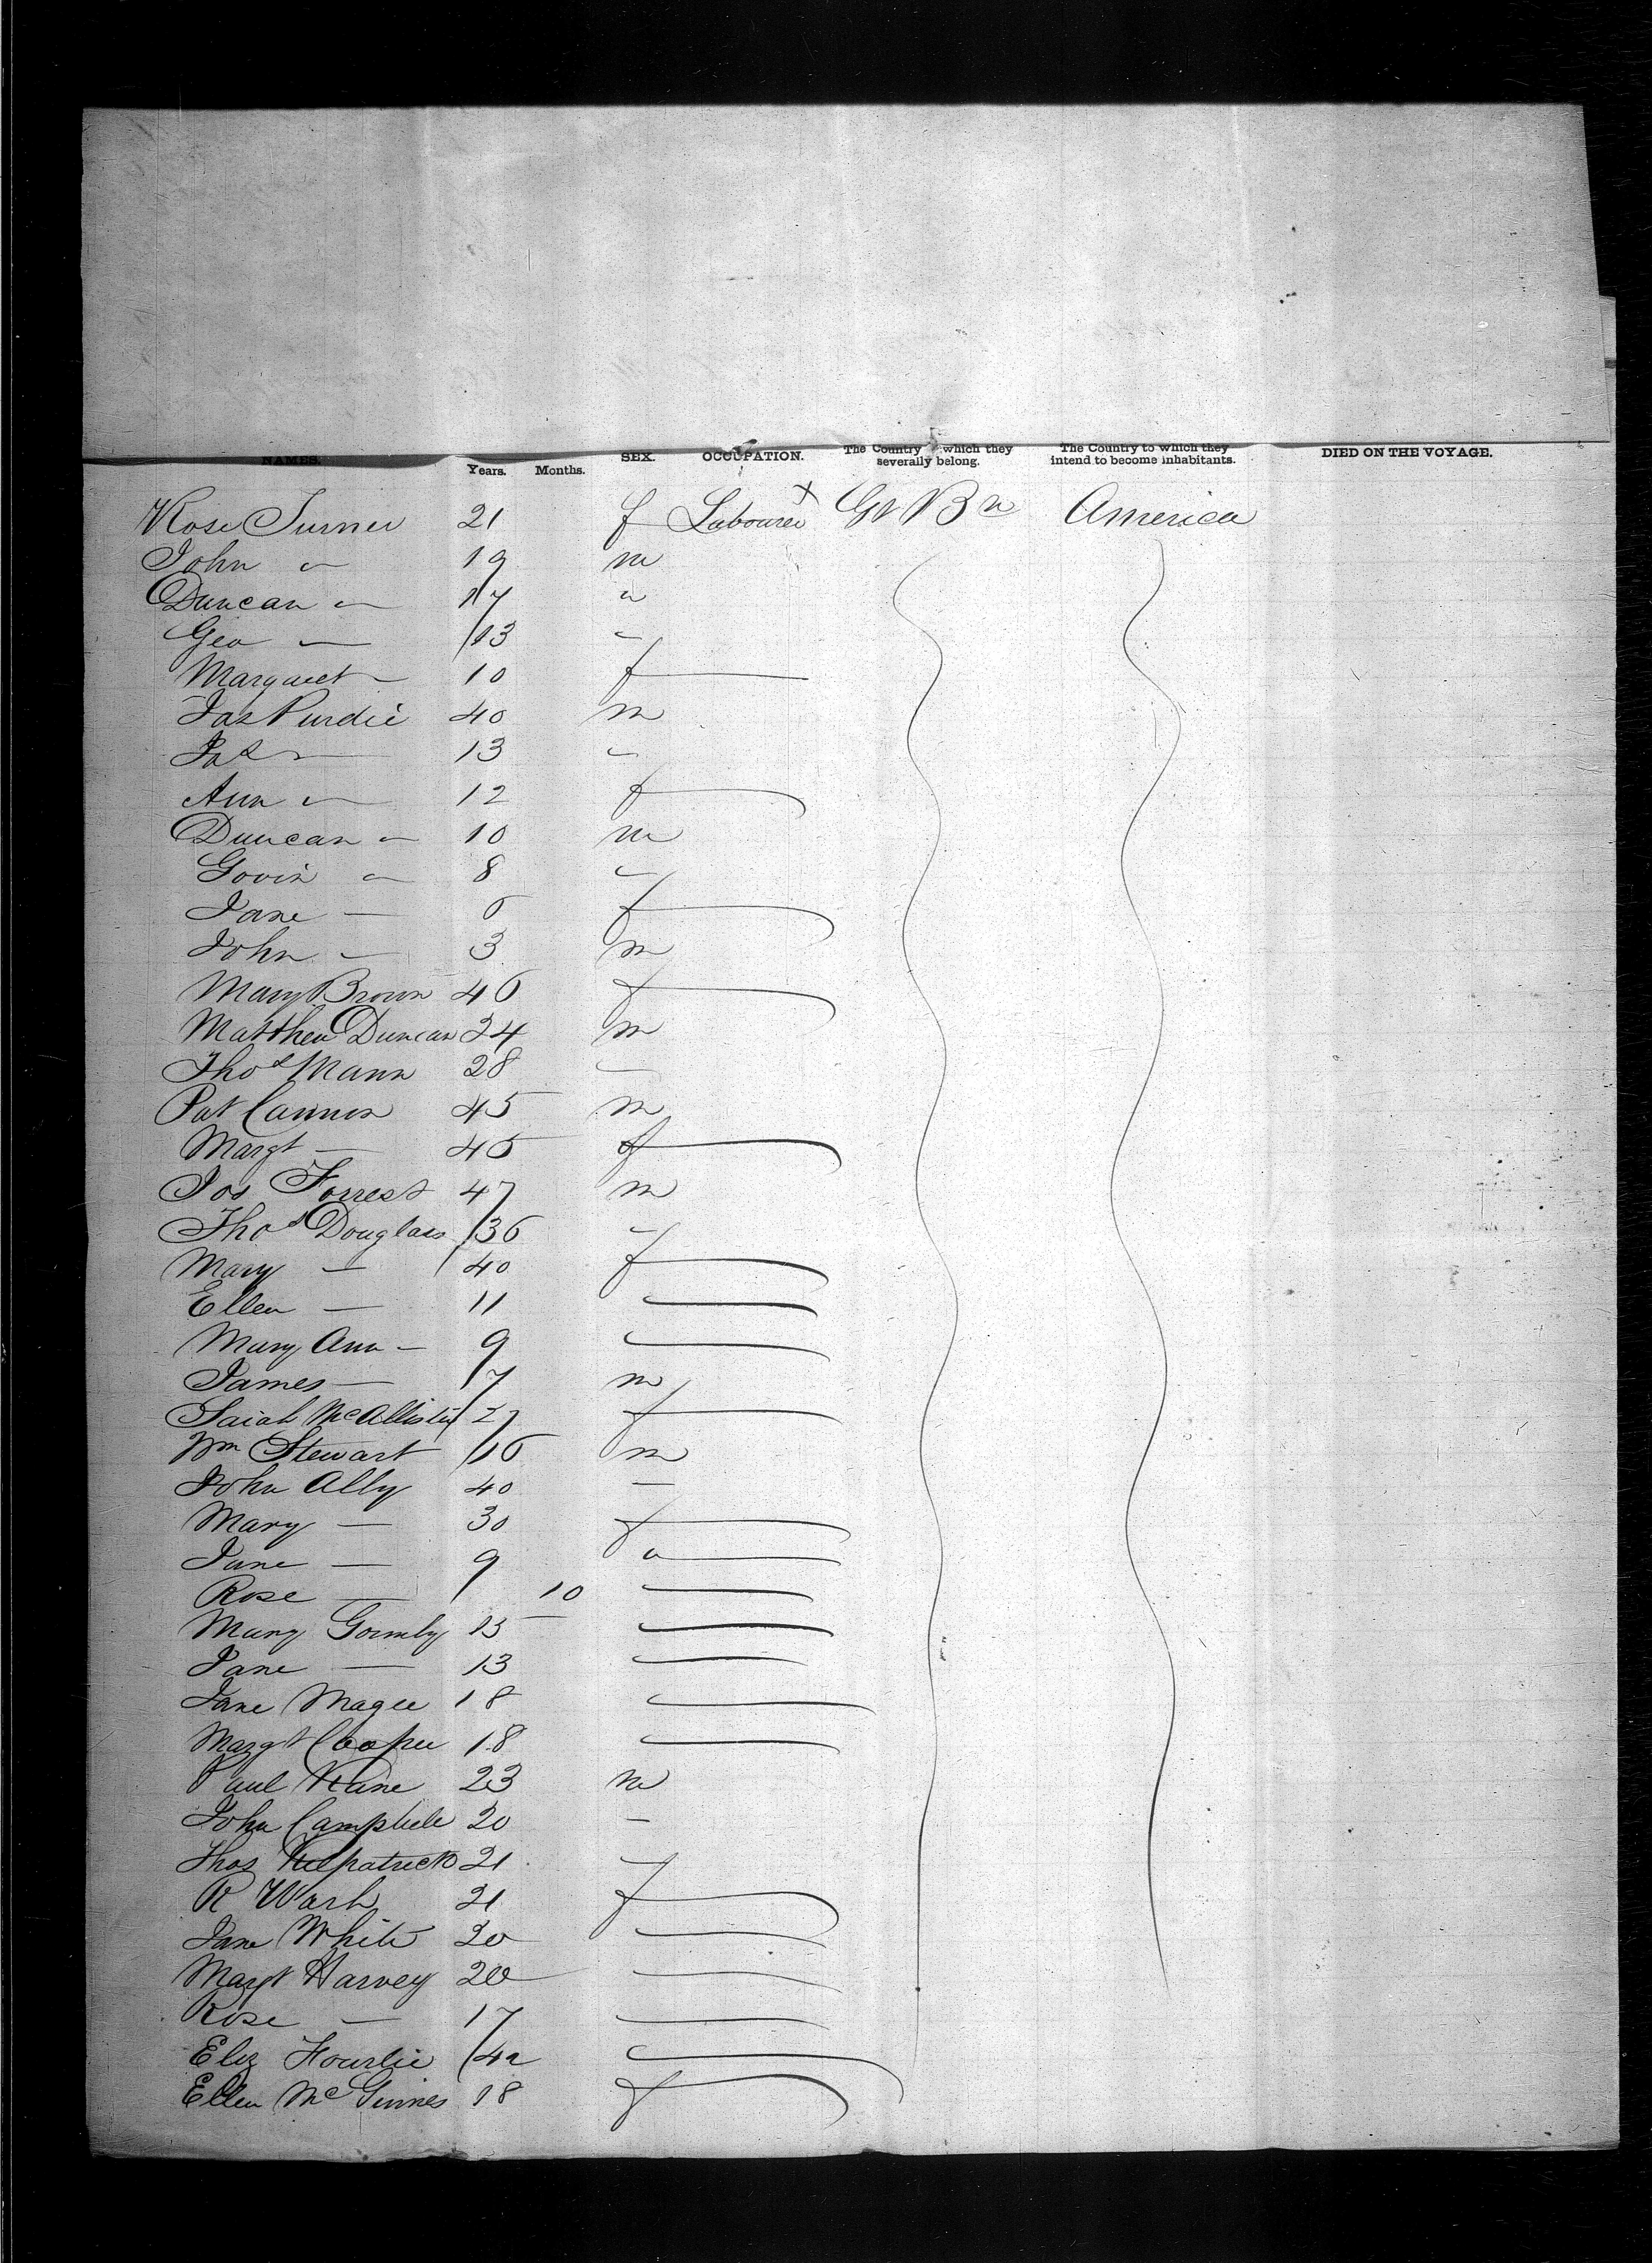 NAMES. Years. Months. SEX. OCCUPATION. The Country which they severally belong. The Country to which they intend to become inhabitants. DIED ON THE VOYAGE.
Rose Turner 21 f Labourer x Gt Bn America
John " 19 m
Duncan " 17 "
Geo — 13 "
Margaret — 10 f
Jas Purdie 40 m
— 13 "
Ann " 12 f
Duncan " 10 m
Govin " 8 "
Jane — 6 f
John — 3 m
Mary Brown 46 f
Matthew Duncan 24 m
Thos Mann 28 —
Pat Cannon 45 m
Margt — 45 f
Jos Forrest 47 m
Thos Douglass 36 "
Mary — 40 f
Ellen — 11 —
Mary Ann — 9 —
James — 7 m
Sarah McAllister 27 f
Wm Stewart 16 m
John Ally 40 —
Mary — 30 f
Jane — 9 "
Rose — 10 —
Mary Gormly 15 —
Jane — 13 —
Jane Magee 18 —
Margt Cooper 18 —
Paul Kane 23 m
John Campbell 20 —
Thos Kilpatrick 21 —
R Wash 21 f
Jane White 20 —
Margt Harvey 20 —
Rose — 17 —
Eliz Hourlie 42 —
Ellen McGinnes 18 f